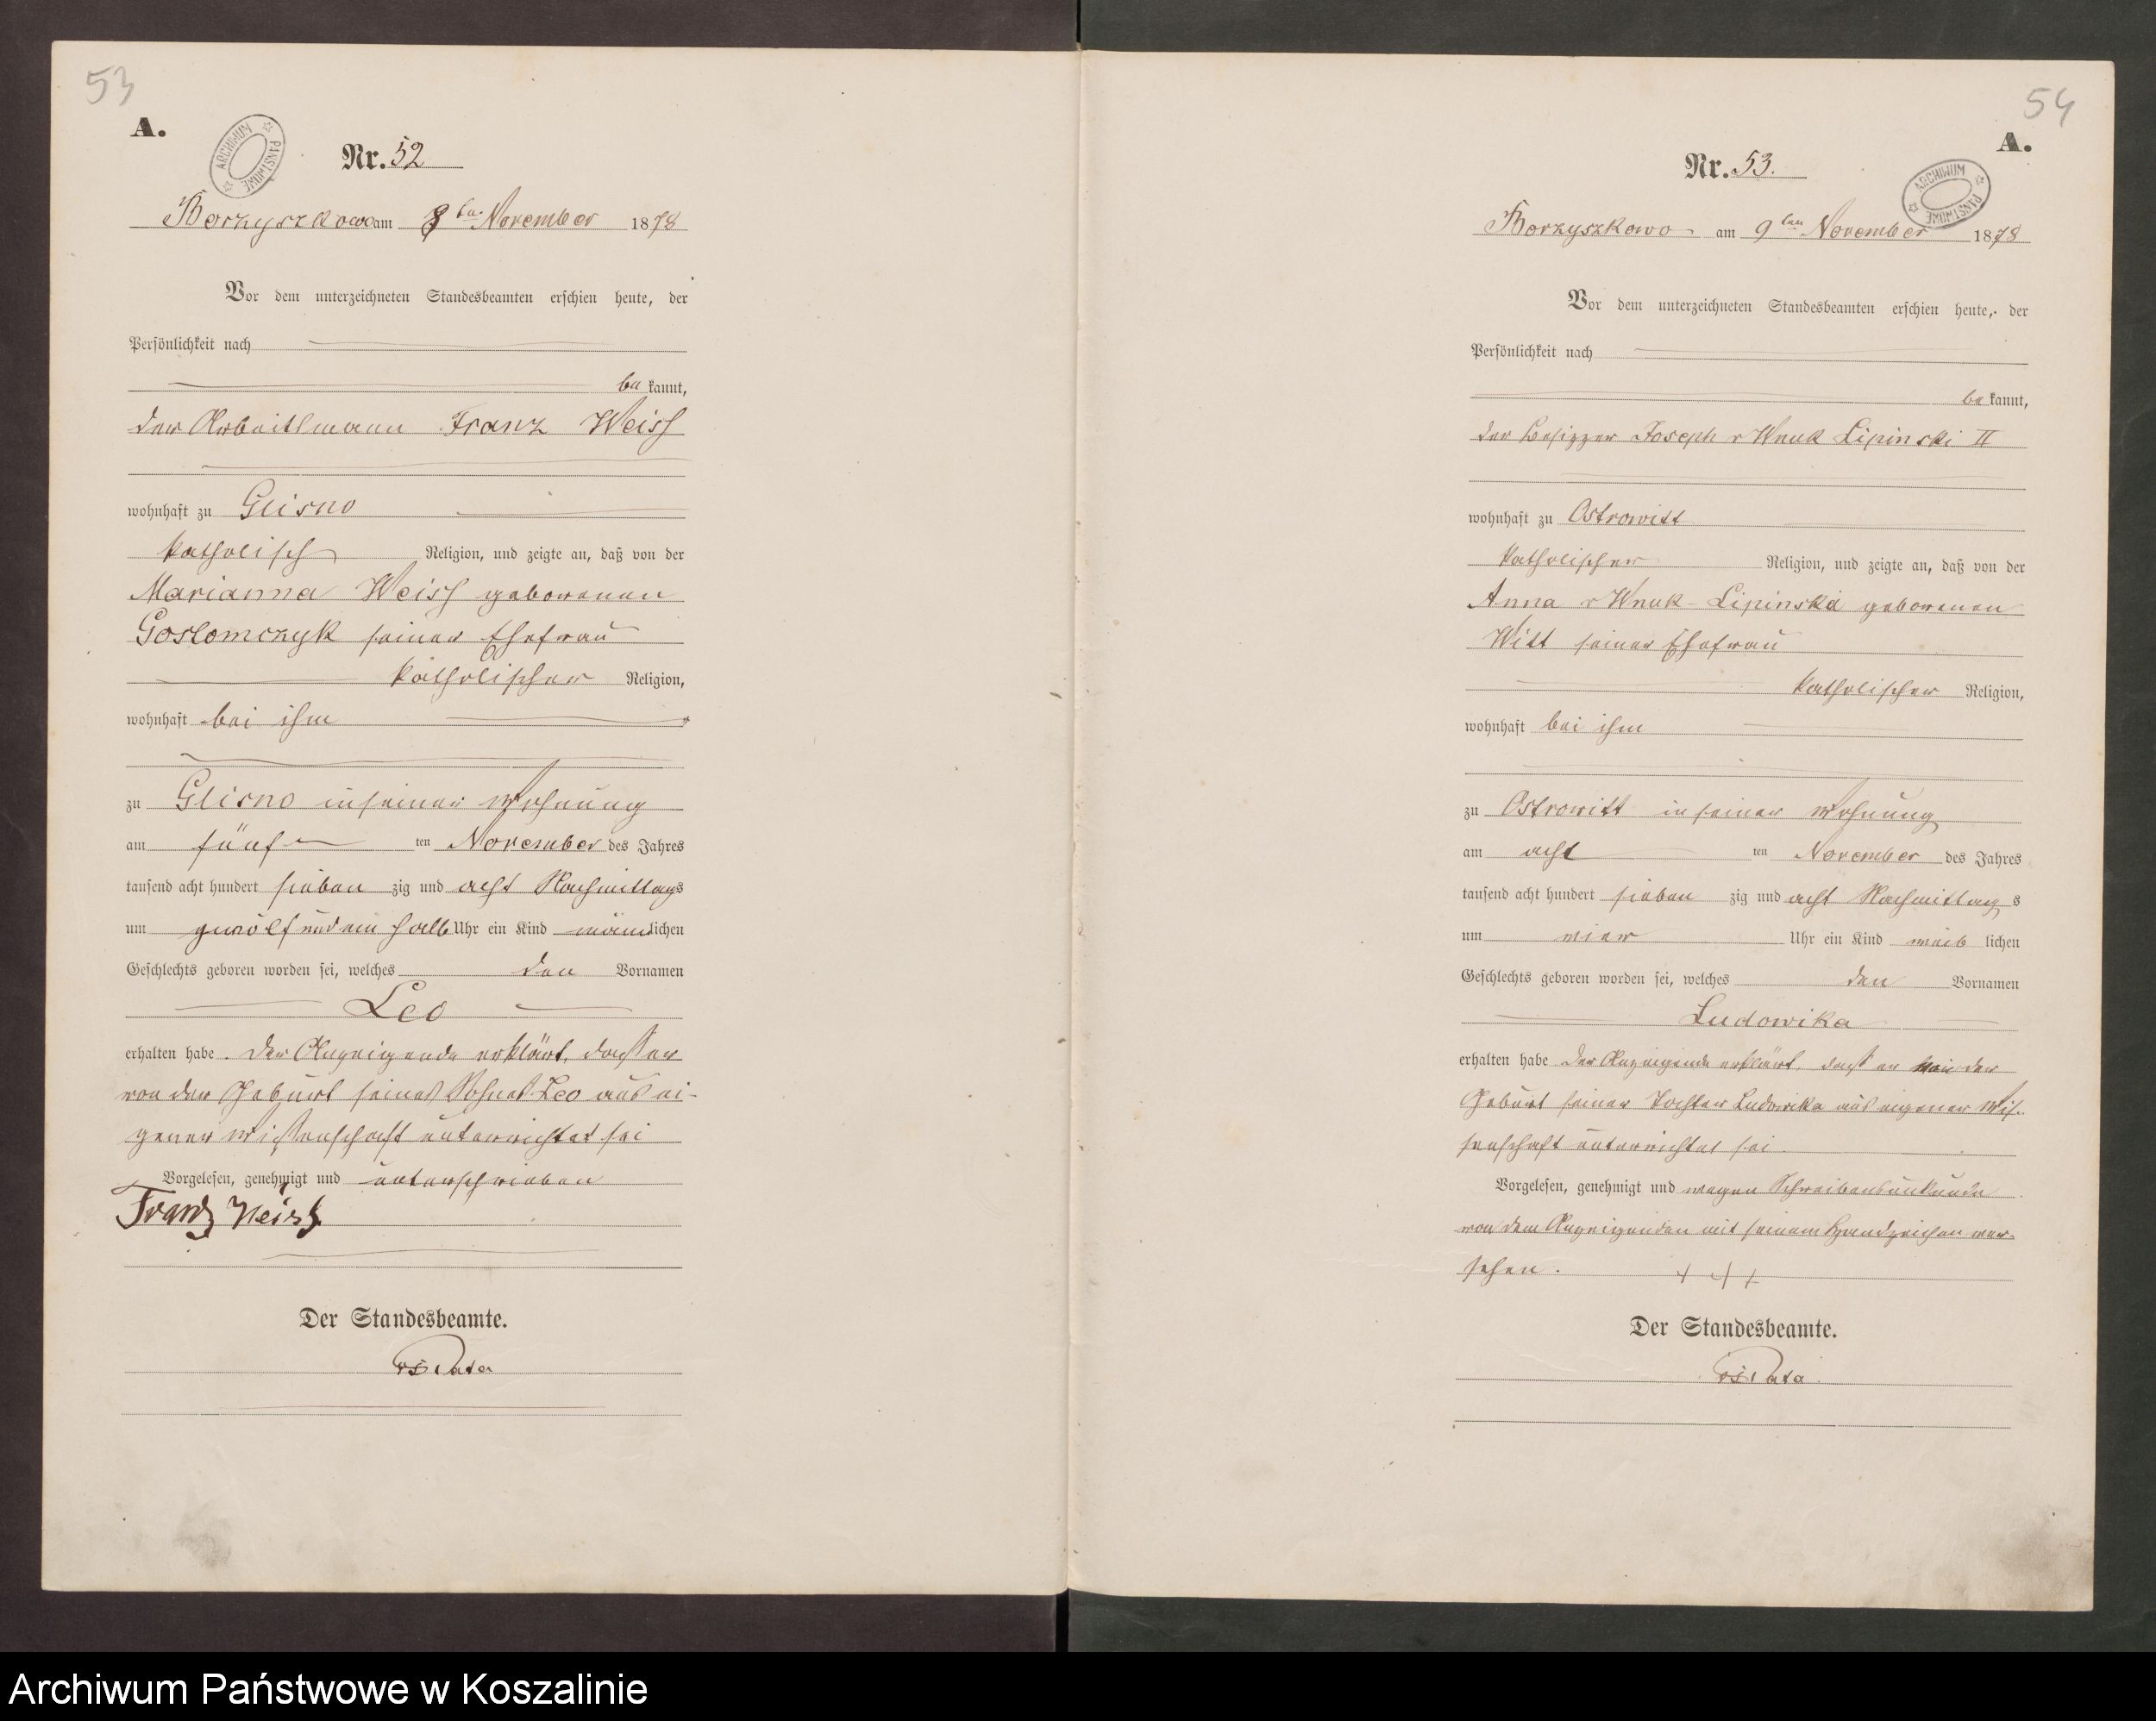 53
A.
ARCHIWUM PAŃSTWOWE
Nr. 52
Borzyszkowo am 8ten November 1878
Vor dem unterzeichneten Standesbeamten erschien heute, der
Persönlichkeit nach
be kannt,
der Arbeitsmann Franz Weiss
wohnhaft zu Glisno
katholisch Religion, und zeigte an, daß von der
Marianna Weiss geborenen
Goslomczyk seiner Ehefrau
katholischer Religion,
wohnhaft bei ihm
zu Glisno in seiner Wohnung
am fünf ten November des Jahres
tausend acht hundert sieben zig und acht Nachmittags
um zwölf und ein halb Uhr ein Kind männlichen
Geschlechts geboren worden sei, welches den Vornamen
Leo
erhalten habe. Der Anzeigende erklärt, dass er
von der Geburt seines Sohnes Leo aus ei-
gener Wissenschaft unterrichtet sei
Vorgelesen, genehmigt und unterschrieben
Franz Weiss
Der Standesbeamte.
54
A.
ARCHIWUM PAŃSTWOWE
Nr. 53.
Borzyszkowo am 9ten November 1878
Vor dem unterzeichneten Standesbeamten erschien heute, der
Persönlichkeit nach
be kannt,
der Besitzer Joseph v Wnuk Lipinski II
wohnhaft zu Ostrowitt
katholischer Religion, und zeigte an, daß von der
Anna v Wnuk-Lipinska geborenen
Witt seiner Ehefrau
katholischer Religion,
wohnhaft bei ihm
zu Ostrowitt in seiner Wohnung
am acht ten November des Jahres
tausend acht hundert sieben zig und acht Nachmittag s
um vier Uhr ein Kind weib lichen
Geschlechts geboren worden sei, welches den Vornamen
Ludowika
erhalten habe Der Anzeigende erklärt, dass er von der
Geburt seiner Tochter Ludowika aus eigener Wis-
senschaft unterrichtet sei.
Vorgelesen, genehmigt und wegen Schreibensunkunde
von dem Anzeigenden mit seinem Handzeichen ver-
sehen. + + +
Der Standesbeamte.
Archiwum Państwowe w Koszalinie